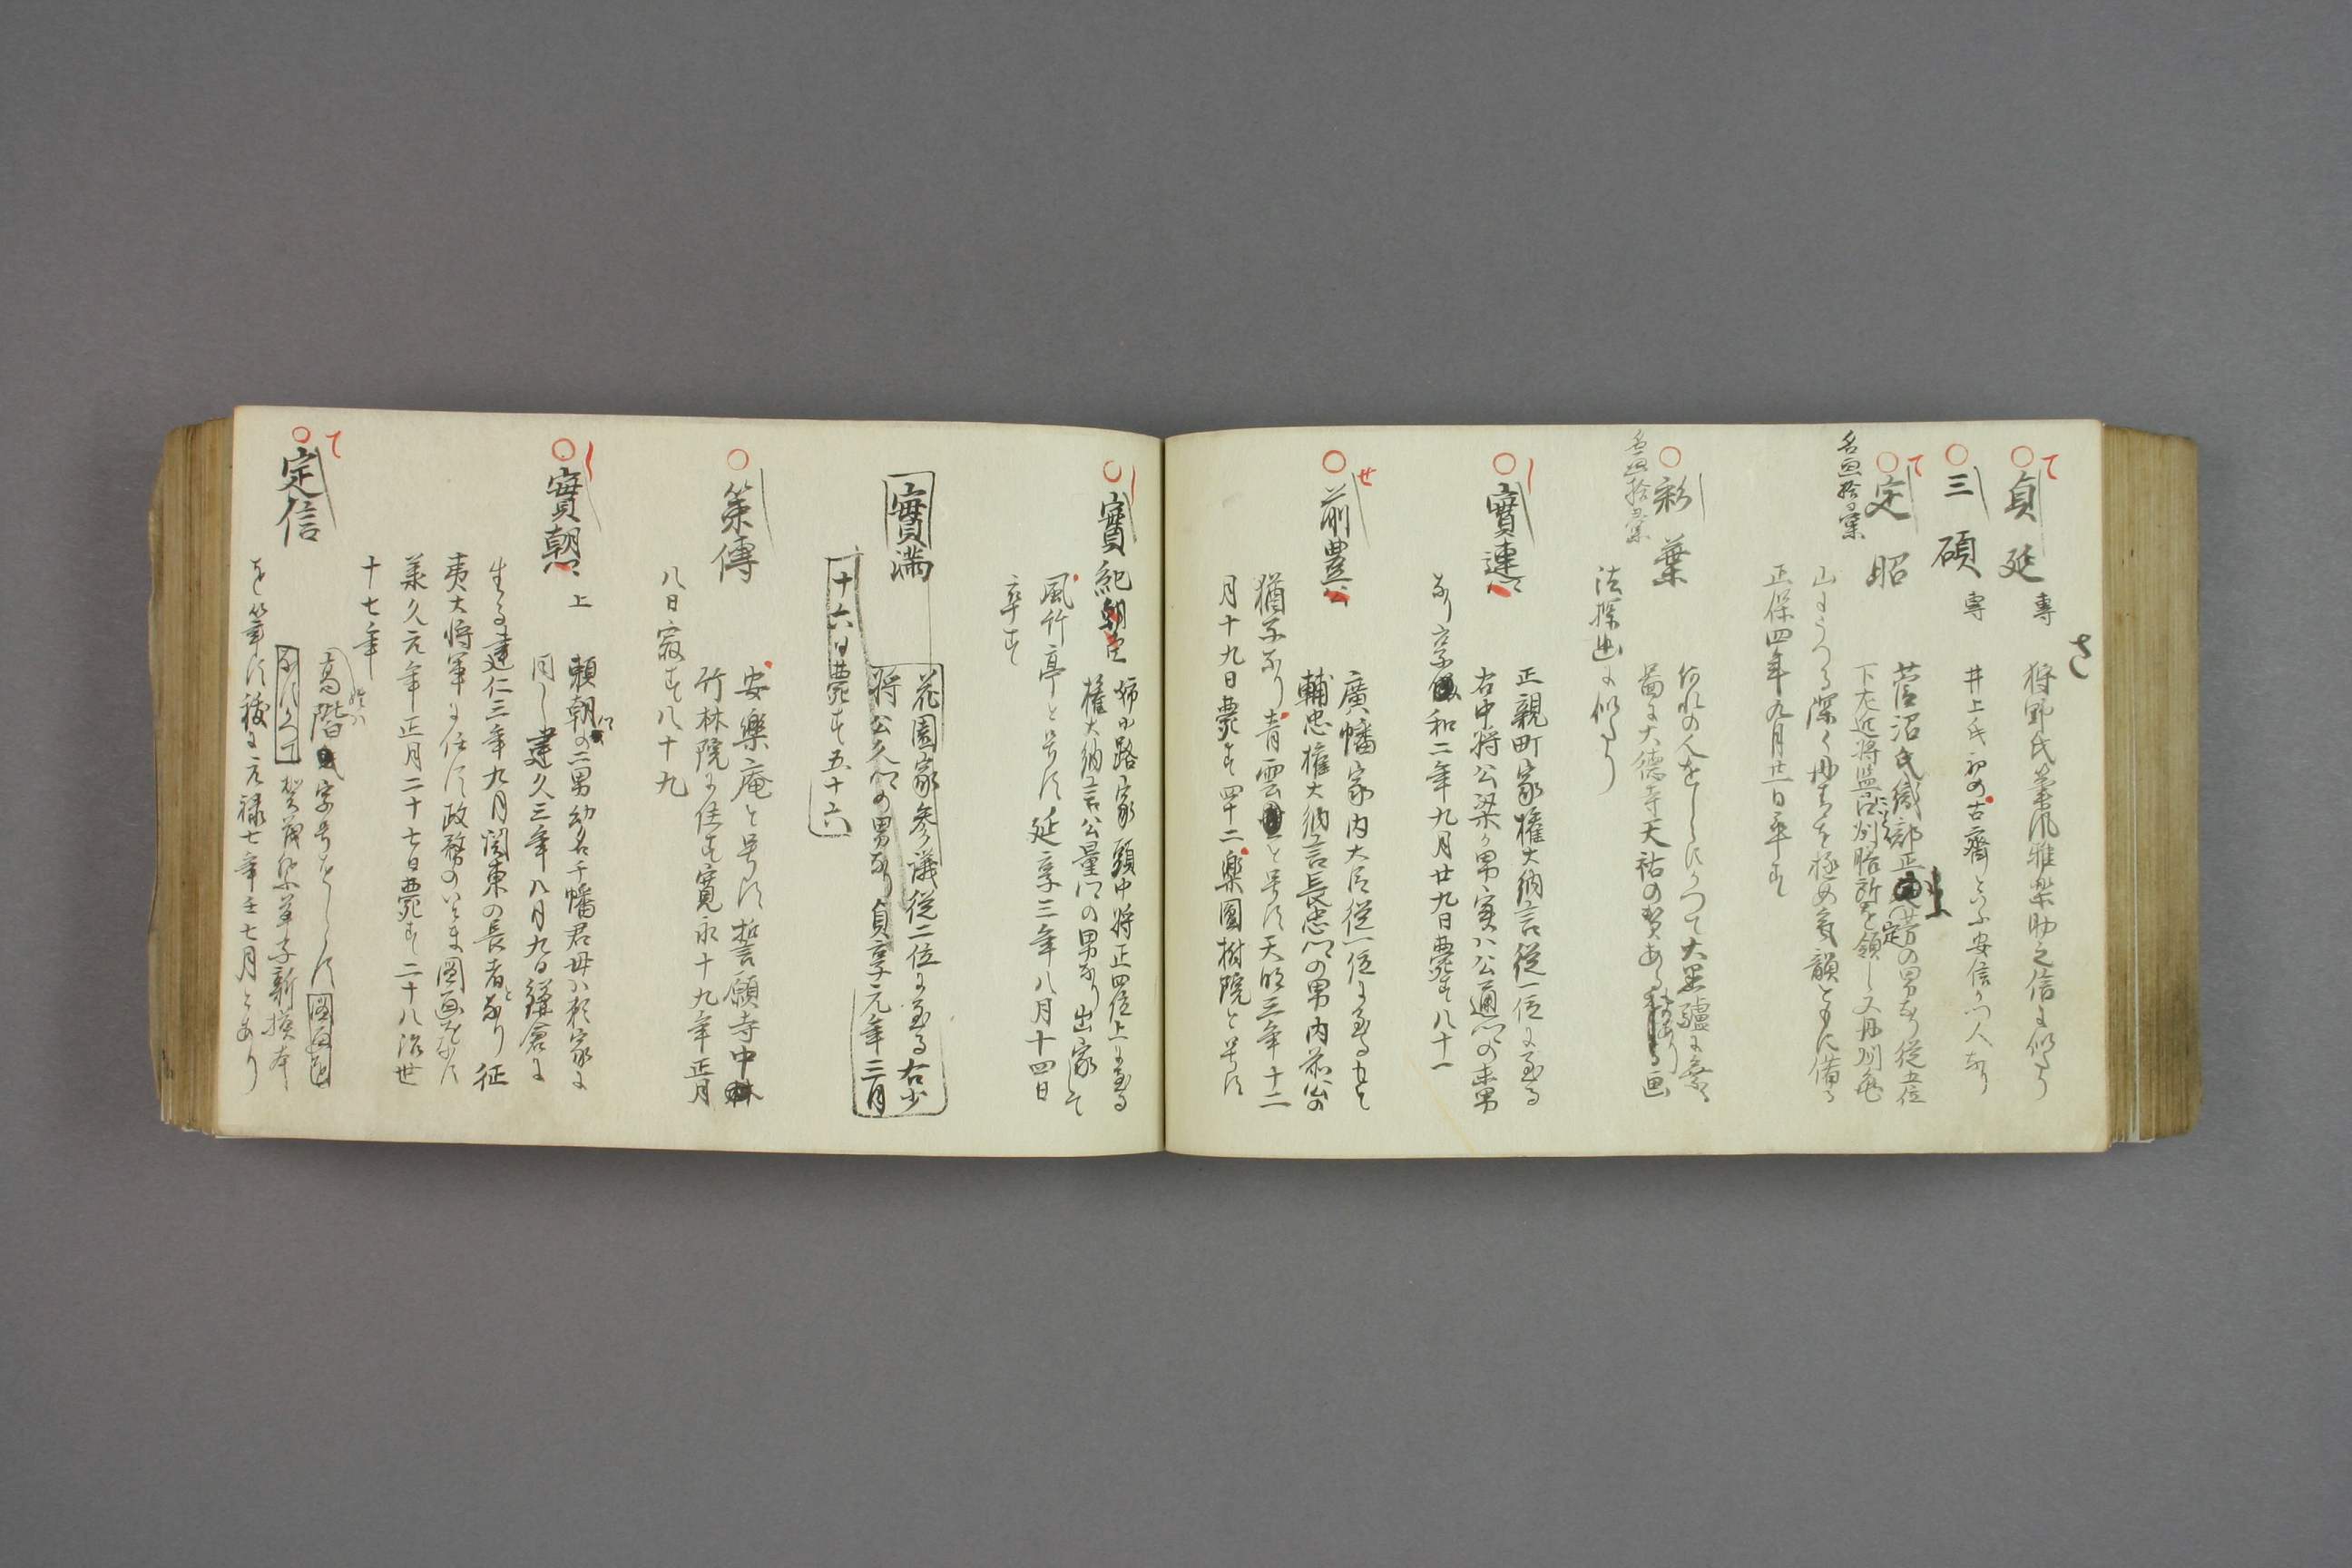 さ
貞延 専
狩野氏筆風雅楽助之信に似たり
三碩 専
井上氏初め古齋といふ安信の門人なり
名画拾彙
定昭
菅沼氏織部正定芳の男なり従五位
下左近将監江州膳所を領し又丹州亀
山にうつる深く丹青を極め気韻ともに備る
正保四年九月廿一日卒す
名画拾彙
彩葉
何れの人をしらすかつて大黒
圖に大徳寺天祐の賛あり画
法探幽に似たり
實連
正親町家権大納言従一位に至る
右中将公梁の男実ハ公通の末男
なり享和二年九月廿九日薨す八十一
前豊公
廣幡家内大臣従一位に至る
輔忠権大納言長忠の男内前公の
猶子なり青雲と号す天明三年十二
月十九日薨す四十二楽園樹院と号す
實紀朝臣
姉小路家頭中将正四位上に至る
権大納言公量の男なり出家して
風竹亭と号す延享三年八月十四日
卒す
實満
花園家参議従二位に至る右少
将公久の男なり貞享元年三月
十六日薨す五十六
策傳
安樂庵と号す誓願寺中
竹林院に住す寛永十九年正月
八日寂す八十九
實朝 上
頼朝の二男幼名千幡君母ハ頼家に
同し建久三年八月九日鎌倉に
生る建仁三年九月関東の長者となり征
夷大将軍に任す政務のいとま圖画を
承久元年正月二十七日薨す二十八治世
十七年
定信
高階氏字号をしらす
賀茂祭草子新摸本
を筆す後に元禄七年壬七月とあり